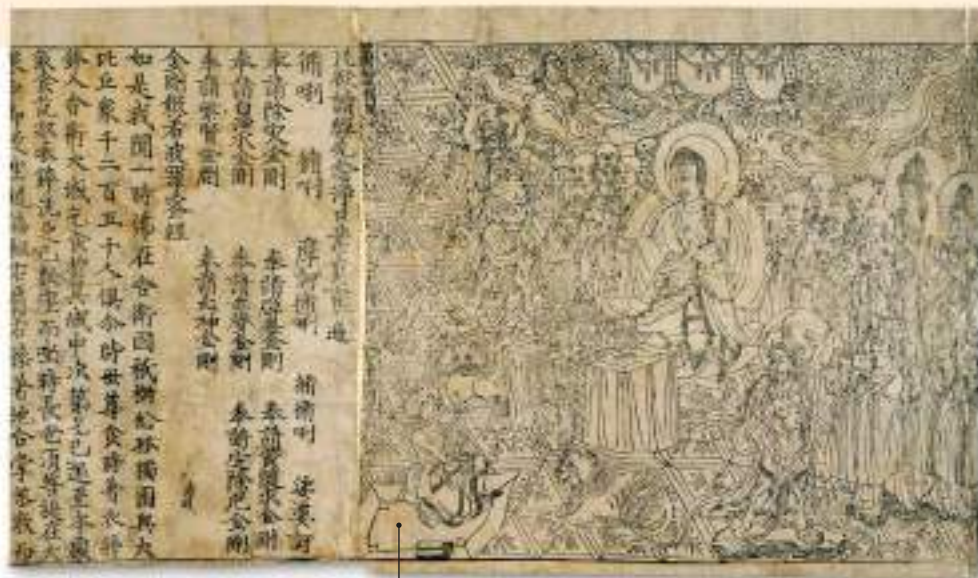 凡欲讀經先念淨口業真言 遍
脩唎 脩唎 摩訶脩唎 脩脩唎 娑婆訶
奉請除災金剛 奉請辟毒金剛 奉請金剛
奉請白水金剛 奉請赤聲金剛 奉請定除厄金剛
奉請紫賢金剛 奉請大神金剛
金剛般若波羅蜜經
如是我聞一時佛在舍衛國祇樹給孤獨園與大
比丘衆千二百五十人俱尒時世尊食時著衣持
鉢入舍衛大城乞食於其城中次第乞已還至本處
飯食訖收衣鉢洗足已敷座而坐時長老須菩提在大
衆中即從座起偏袒右肩右膝著地合掌恭敬而